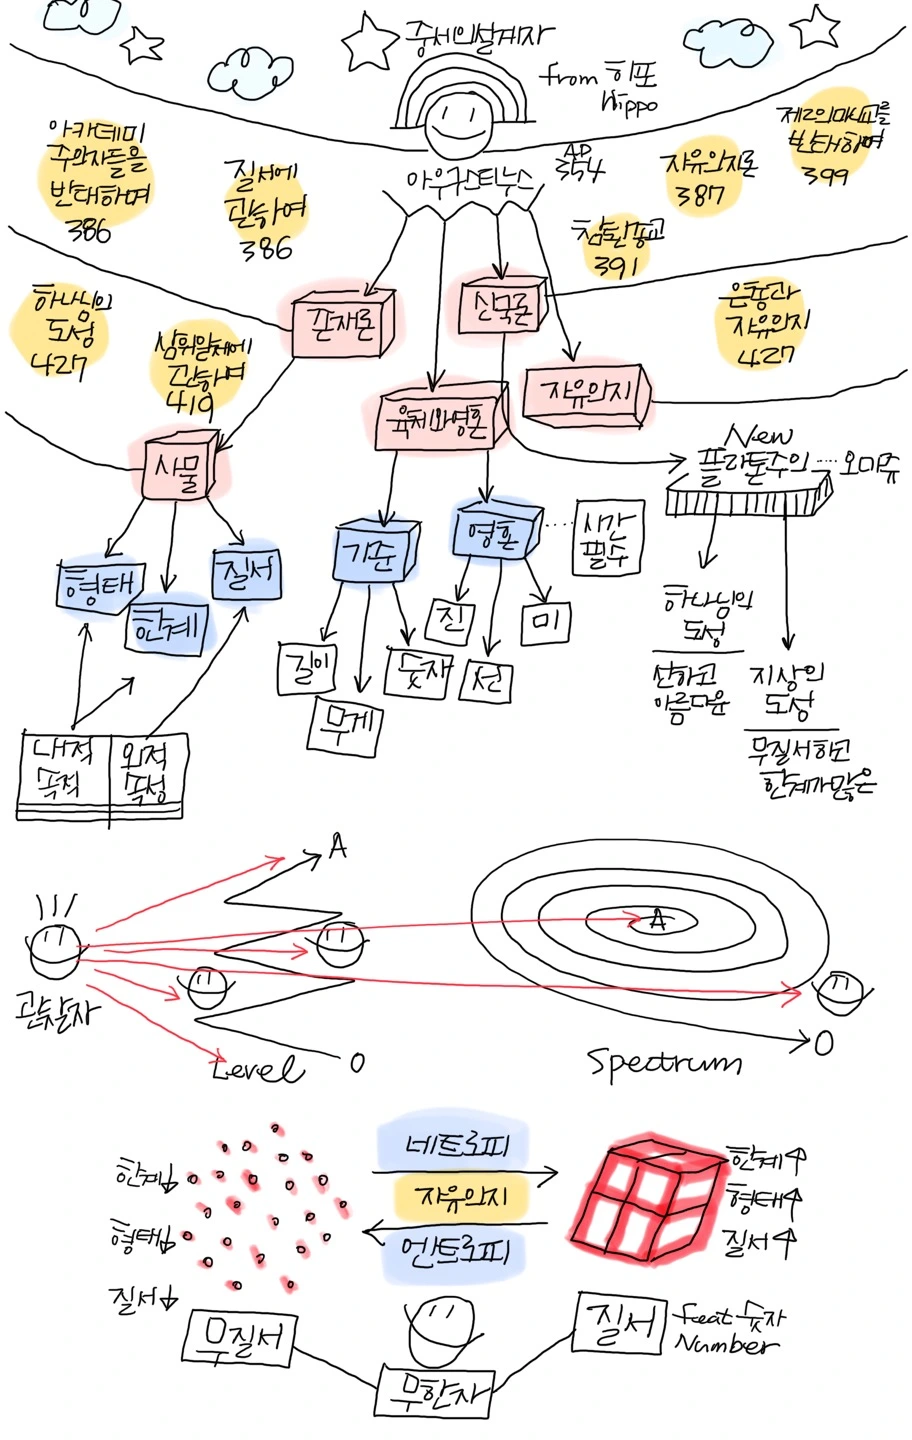 중세의설계자
from 히포
Hippo
AD
354
아우구스티누스
아카데미
주의자들을
반대하며
386
질서에
관하여
386
자유의지론
387
제2의마니교를
반대하며
399
참된종교
391
하나님의
도성
427
삼위일체에
관하여
419
은총과
자유의지
427
존재론
신국론
육체와영혼
자유의지
사물
New
플라톤주의 ···· 오미쥬
형태
한계
질서
기준
영혼
시간
필수
길이
무게
숫자
진
선
미
하나님의
도성
선하고
아름다운
지상의
도성
무질서하고
한계가많은
내적
목적
외적
속성
A
관찰자
Level
O
A
Spectrum
O
한계↓
형태↓
질서↓
네트로피
자유의지
엔트로피
한계↑
형태↑
질서↑
무질서
무한자
질서
feat 숫자
Number